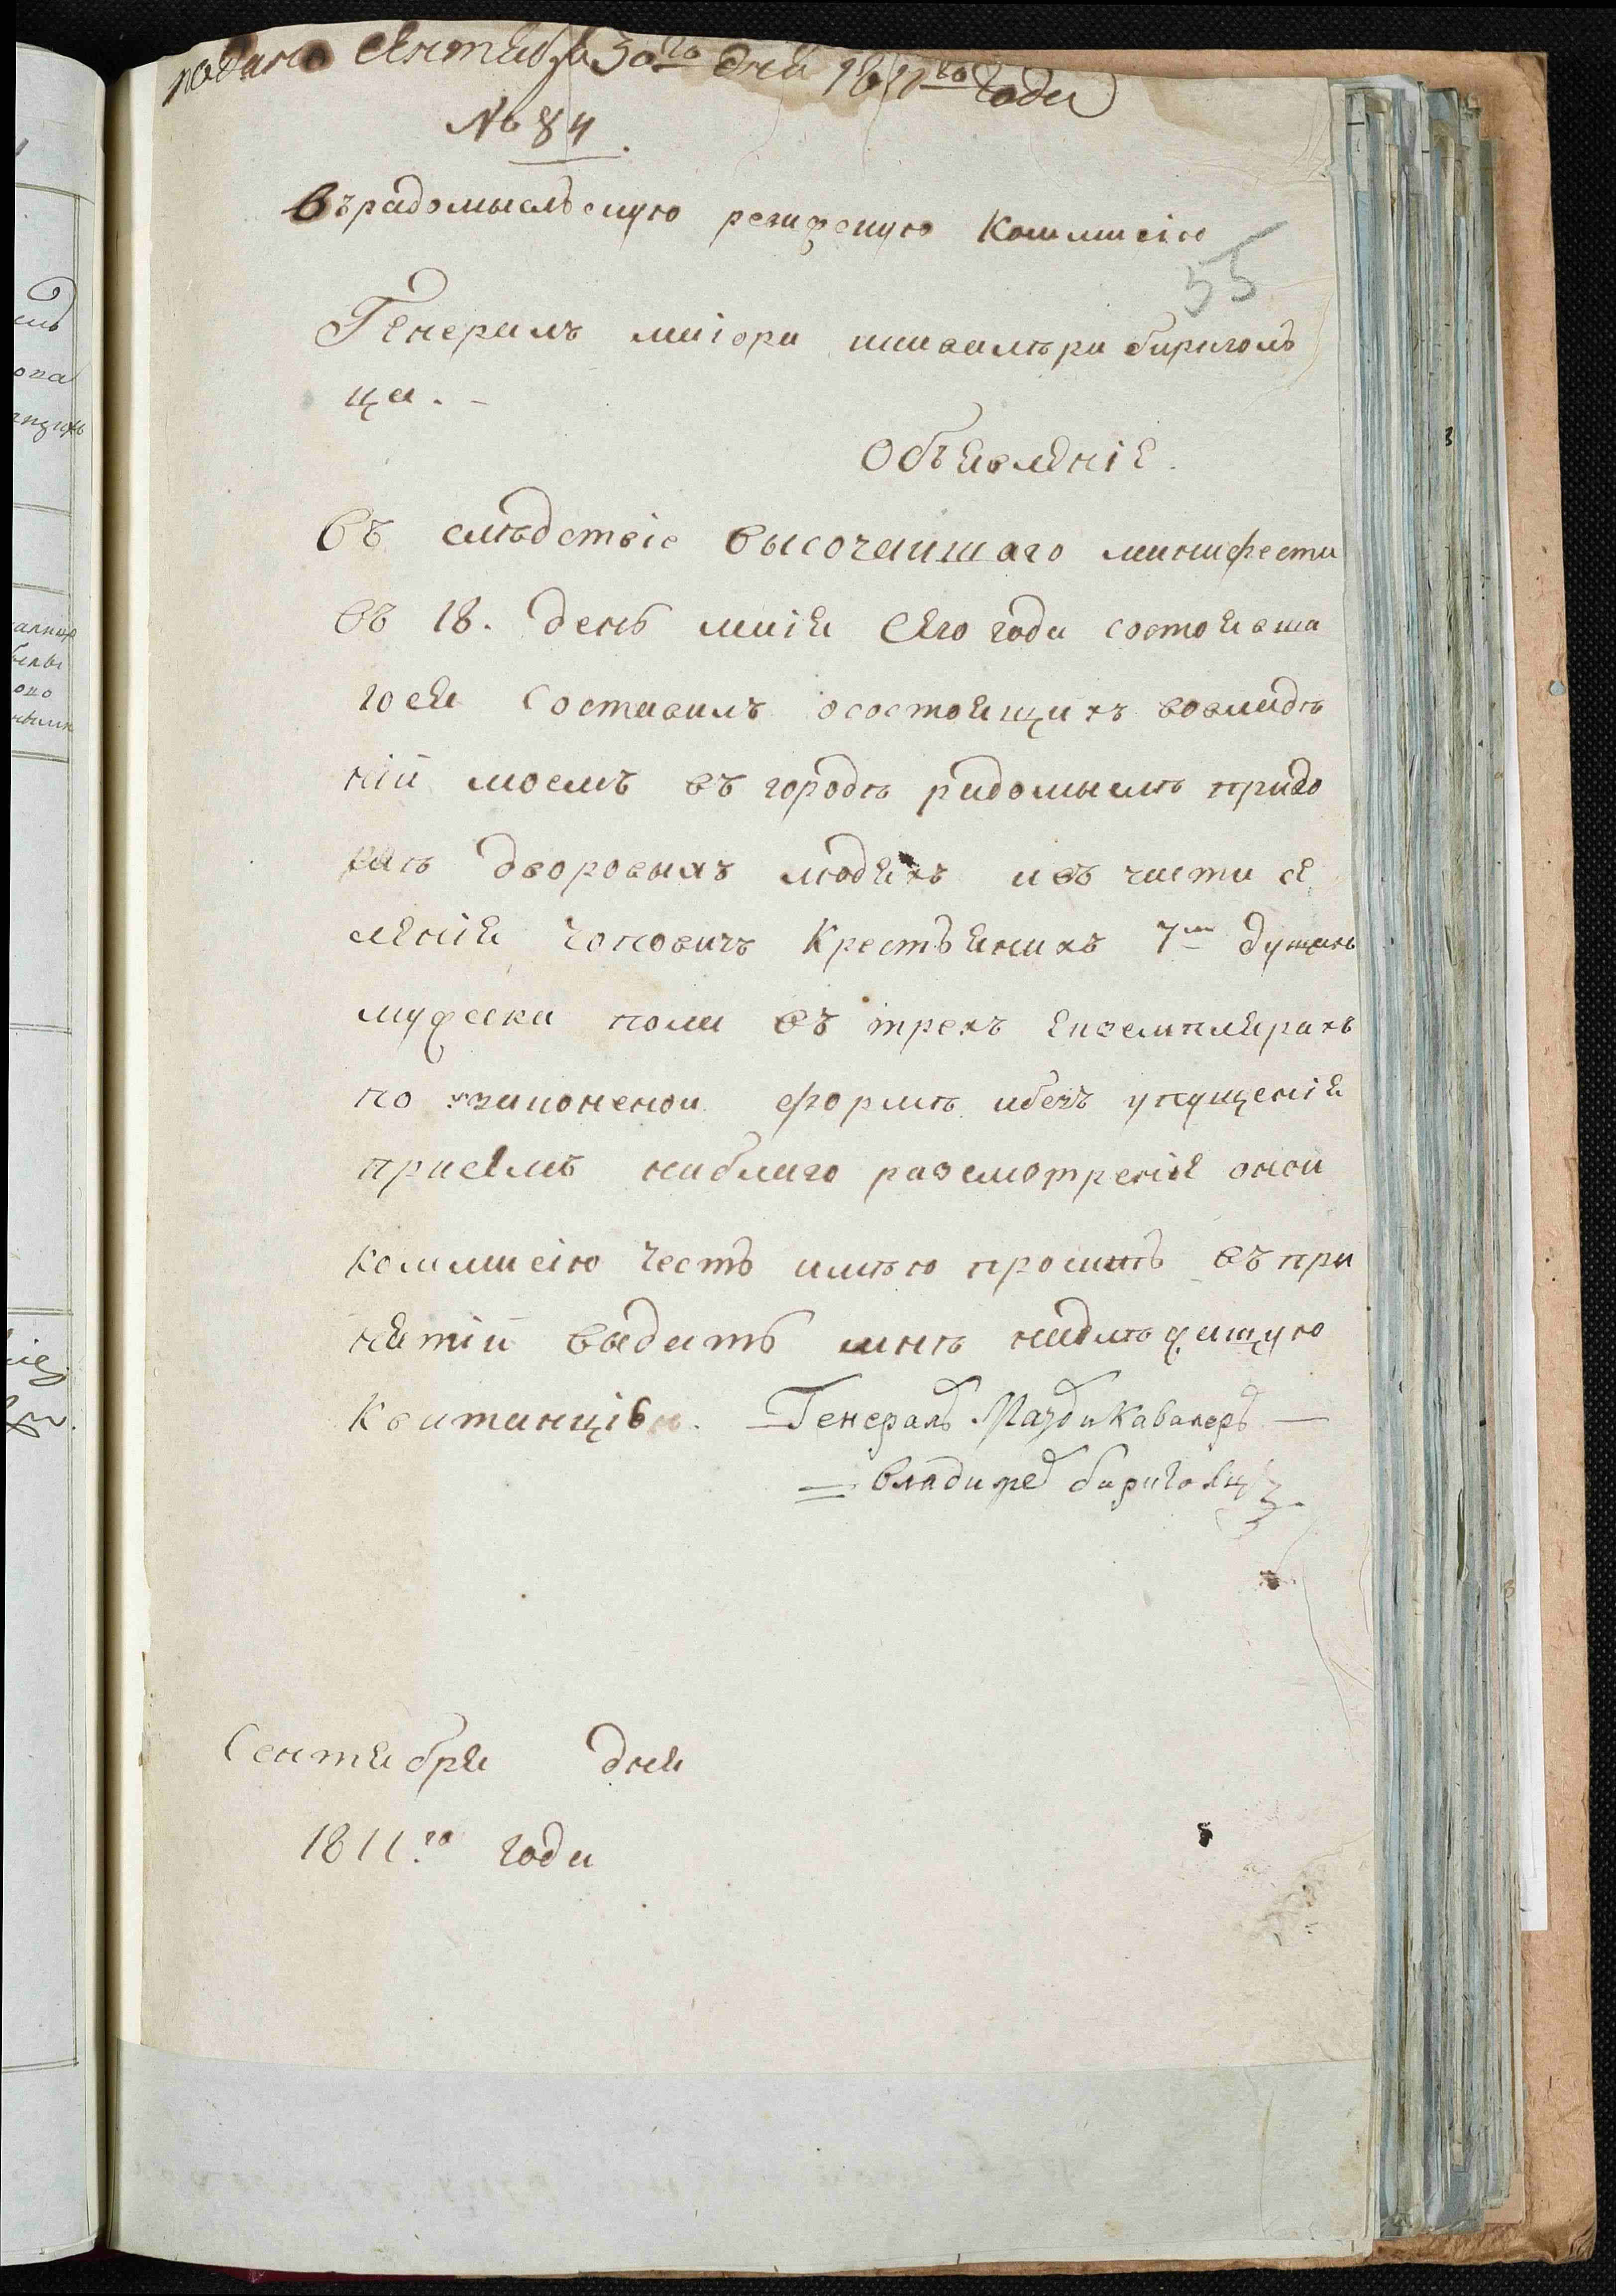 подано Сентября 30го дня 1811го Года
№ 84.
Въ радомысльскую ревизскую Коммисію
55
Генералъ маіора икавалѣра биригольца
ца. -
Объявленіе.
Въ слѣдствіе высочаишаго манифеста
въ 18. день маія Сего года состоявша
гося Составилъ осостоящихъ вовладѣ
ніи моемъ въ городѣ радомыслѣ придо
рѣ дворовыхъ людяхъ ивъ части се
ленія Чоповичъ Крестьянахъ 7ми душахъ
мужеска пола въ трехъ екземплярахъ
по узаконеной формѣ ибезъ упущенія
присемъ наблаго разсмотреніе оной
коммисію Честь имѣю просить въ при
нятіи выдать мнѣ надлѣжащую
Квитанцію. Генералъ Маіоръ и Кавалеръ —
= Владиже биригольц
Сентября дня
1811.го года